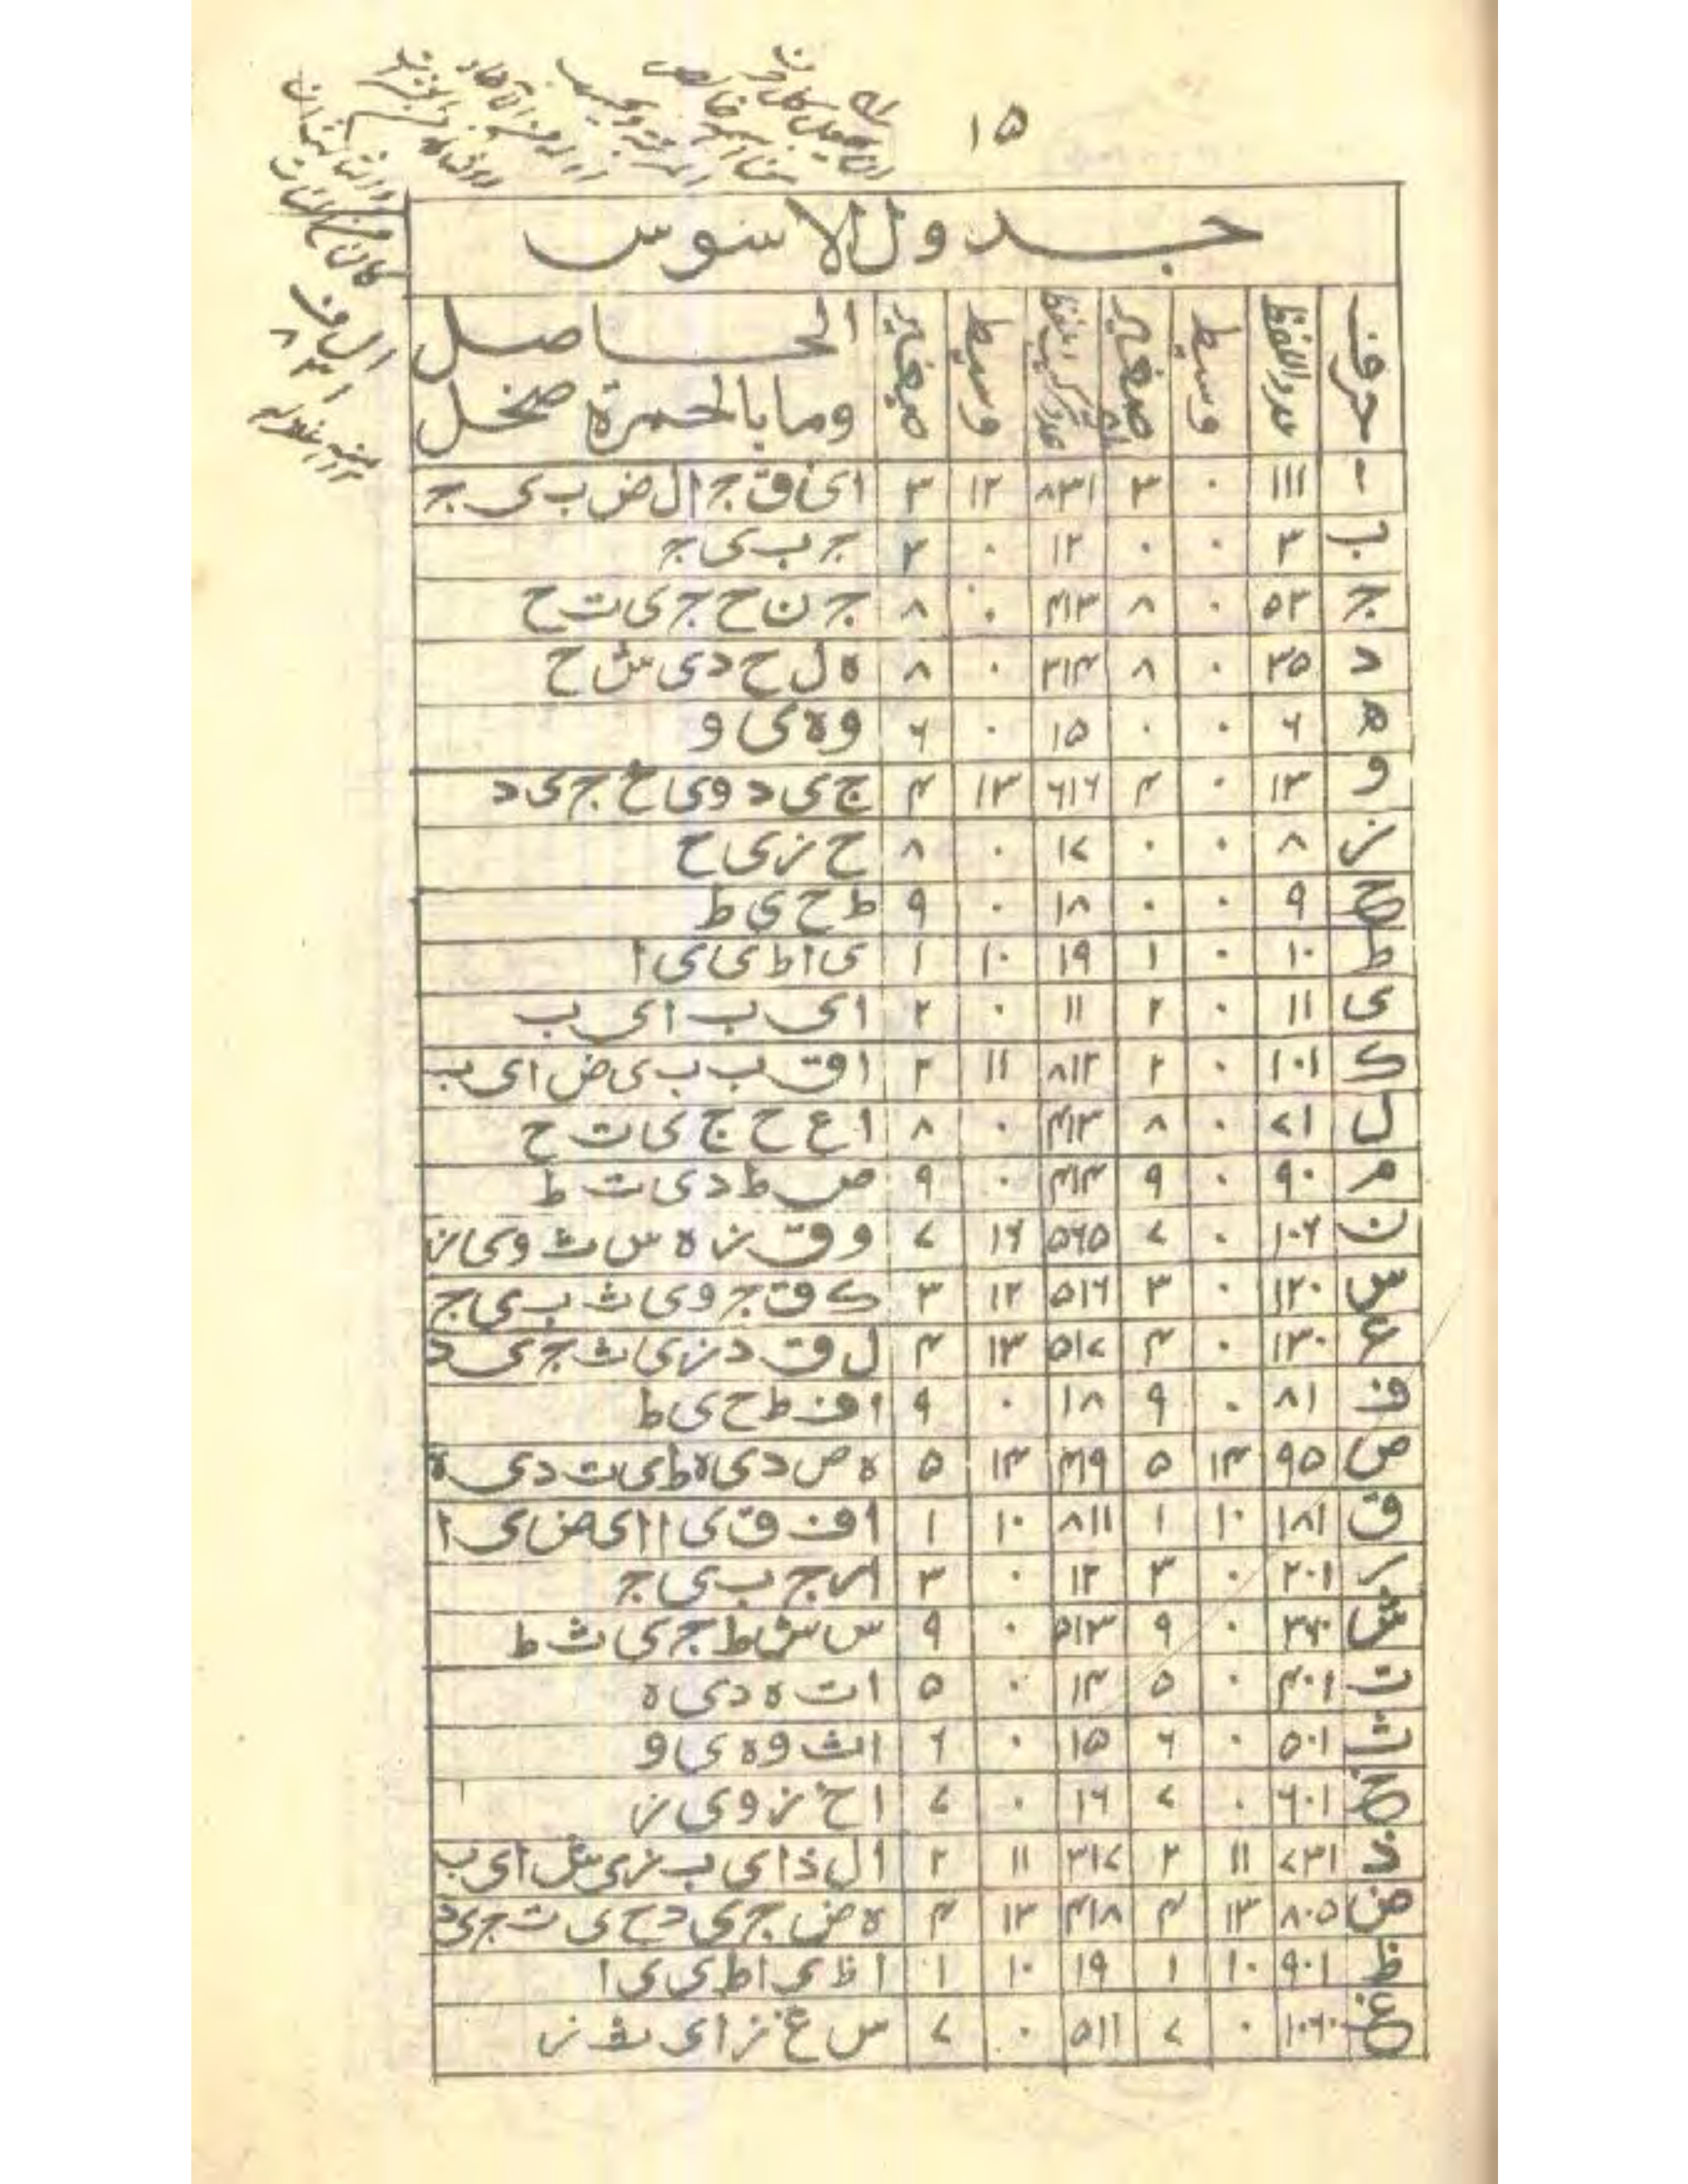 ١٥
جدول الاسوس
حرف عدد اللفظ وسيط صغير وسيط صيغاير الحاصل
وما بالحمرة مخل
ا ١١١ ٠ ٣ ٨٣١ ١٢ ٣ ای ق ج ال ض ب ی ج
ب ٣ ٠ ٠ ١٢ ٠ ٣ ج ب ی ج
ج ٥٣ ٠ ٨ ٤١٣ ٠ ٨ ج ن ح ج ی ت ح
د ٣٥ ٠ ٨ ٣١٤ ٠ ٨ ه ل ح د ی ش ح
ه ٦ ٠ ٠ ١٥ ٠ ٦ و ه ی و
و ١٣ ٠ ٤ ٦١٦ ١٣ ٤ ج ی د و ی خ ج ی د
ز ٨ ٠ ٠ ١٧ ٠ ٨ ح ز ی ح
ح ٩ ٠ ٠ ١٨ ٠ ٩ ط ح ی ط
ط ١٠ ٠ ١ ١٩ ١٠ ١ ی ا ط ی ی ا
ی ١١ ٠ ٢ ١١ ٠ ٢ ا ی ب ا ی ب
ك ١٠١ ٠ ٢ ٨١٢ ١١ ٢ ا ق ب ب ی ض ا ی ب
ل ٧١ ٠ ٨ ٤١٣ ٠ ٨ ا ع ح ج ی ت ح
م ٩٠ ٠ ٩ ٤١٤ ٠ ٩ ص ط د ی ت ط
ن ١٠٦ ٠ ٧ ٥٦٥ ١٦ ٧ و ق ز ه س ث و ی ز
س ١٢٠ ٠ ٣ ٥١٦ ١٢ ٣ ك ق ج و ی ث ب ی ج
ع ١٣٠ ٠ ٤ ٥١٧ ١٣ ٤ ل ق د ز ی ث ج ی د
ف ٨١ ٠ ٩ ١٨ ٠ ٩ ا ف ط ح ی ط
ص ٩٥ ١٤ ٥ ٤١٩ ١٤ ٥ ه ص د ی ه ط ی ت د ی ه
ق ١٨١ ١٠ ١ ٨١١ ١٠ ١ ا ف ق ی ا ا ی ض ی ا
ر ٢٠١ ٠ ٣ ١٢ ٠ ٣ ا ر ج ب ی ج
ش ٣٦٠ ٠ ٩ ٥١٣ ٠ ٩ س ش ط ج ی ث ط
ت ٤٠١ ٠ ٥ ١٤ ٠ ٥ ا ت ه د ی ه
ث ٥٠١ ٠ ٦ ١٥ ٠ ٦ ا ث و ه ی و
خ ٦٠١ ٠ ٧ ١٦ ٠ ٧ ا خ ز و ی ز
ذ ٧٣١ ١١ ٢ ٣١٧ ١١ ٢ ا ل ذ ا ی ب ز ی ش ا ی ب
ض ٨٠٥ ١٣ ٤ ٤١٨ ١٣ ٤ ه ض ج ی د ح ی ت ج ی د
ظ ٩٠١ ١٠ ١ ١٩ ١٠ ١ ا ظ ی ا ط ی ی ا
غ ١٠٦٠ ٠ ٧ ٥١١ ٠ ٧ س غ ز ا ی ث ز
ال ف
٨ ٣ ١